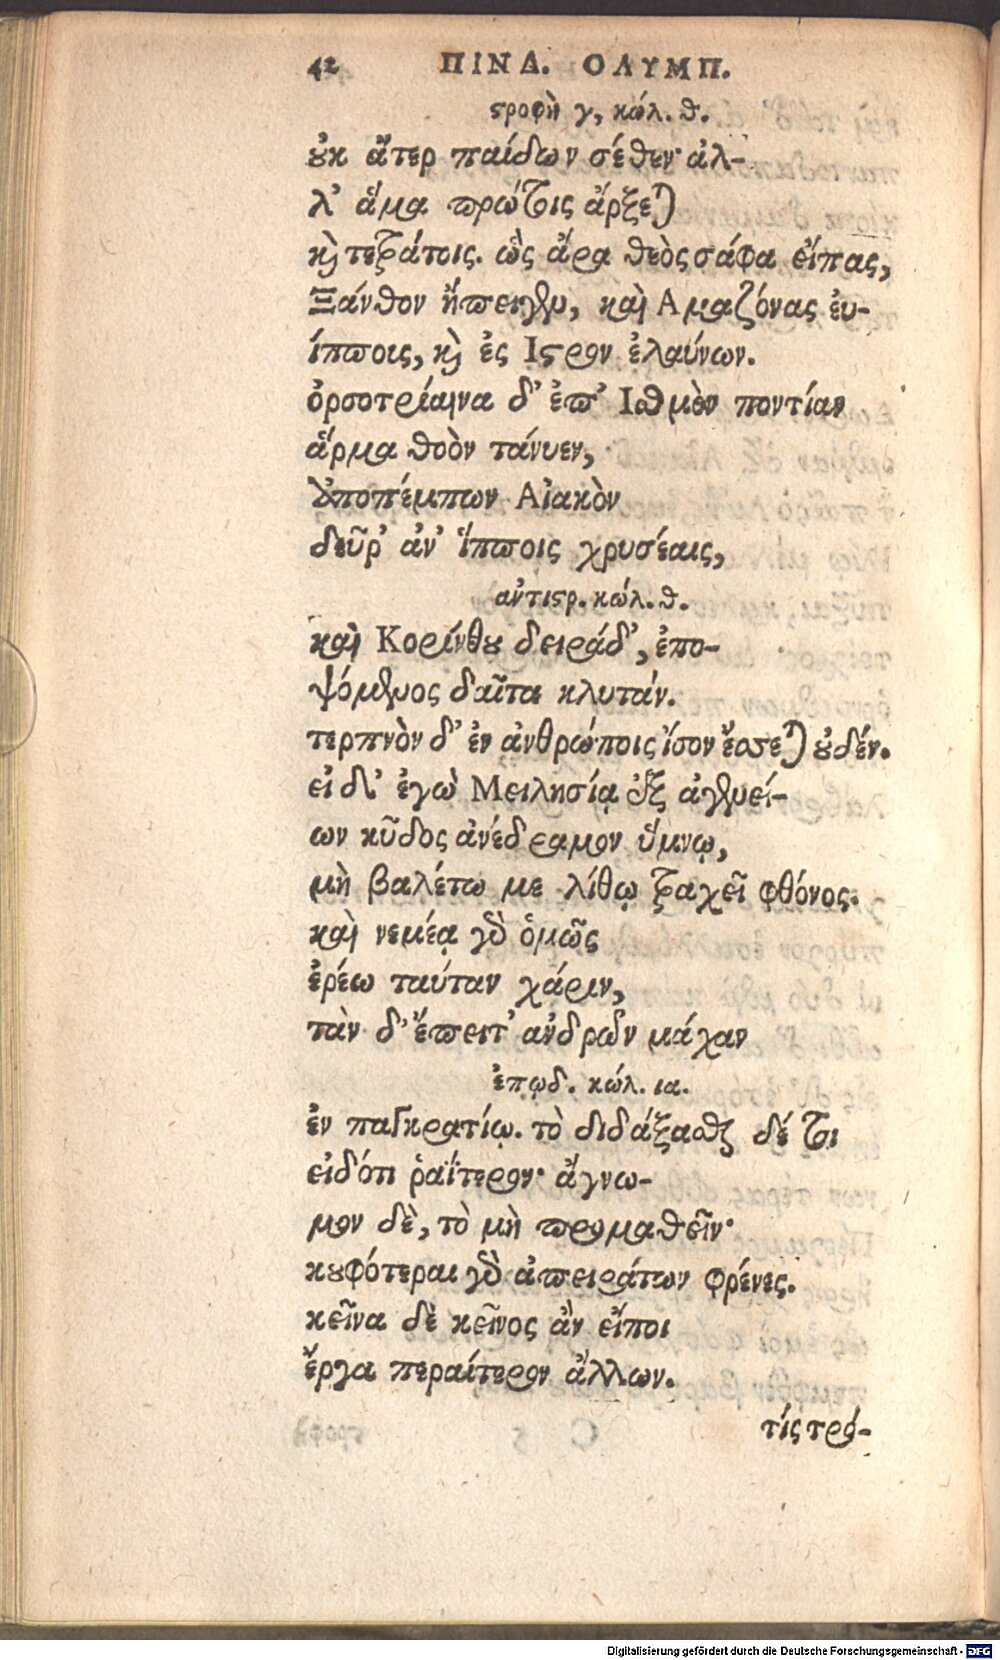 42 ΠΙΝΔ. ΟΛΥΜΠ.
ϛροφὴ γ, κώλ. θ.
ȣ̓κ ἄτερ παίδων σέθεν· ἀλ-
λ’ ἅμα πρώτοις ἄρξεται
καὶ τετράτοις. ὣς ἄρα θεὸς σάφα εἴπας,
Ξάνθον ἤπειγεν, καὶ Αμαζόνας ἐυ-
ίπποις, καὶ ἐς Ιϛρον ἐλαύνων.
ὀρσοτρίαινα δ’ ἐπ’ Ισθμὸν ποντίαν
ἅρμα θοὸν τάνυεν,
ἀποπέμπων Αἰακὸν
δεῦρ’ ἀν’ ἵπποις χρυσέαις,
αντιϛρ. κώλ. θ.
καὶ Κορίνθȣ δειράδ’, ἐπο-
ψόμενος δαῖτα κλυτάν.
τερπνὸν δ’ ἐν ἀνθρώποις ἴσον ἔσσεται ȣ̓δέν.
εἰ δ’ ἐγὼ Μειλησίᾳ ἐξ ἀγενεί-
ων κῦδος ἀνέδραμον ὕμνῳ,
μὴ βαλέτω με λίθῳ τραχεῖ φθόνος.
καὶ νεμέᾳ γὸ ὁμῶς
ἐρέω ταύταν χάριν,
τὰν δ’ ἔπειτ’ ἀνδρῶν μάχαν
ἐπῳδ. κώλ. ια.
ἐν παγκρατίῳ. τὸ διδάξασθαι δέ τοι
εἰδότι ῥαΐτερον· ἄγνω-
μον δὲ, τὸ μὴ προμαθεῖν·
κȣφότεραι γὸ ἀπειράτων φρένες.
κεῖνα δὲ κεῖνος ἂν εἴποι
ἔργα περαίτερον ἄλλων.
τίς τρό-
Digitalisierung gefördert durch die Deutsche Forschungsgemeinschaft - DFG